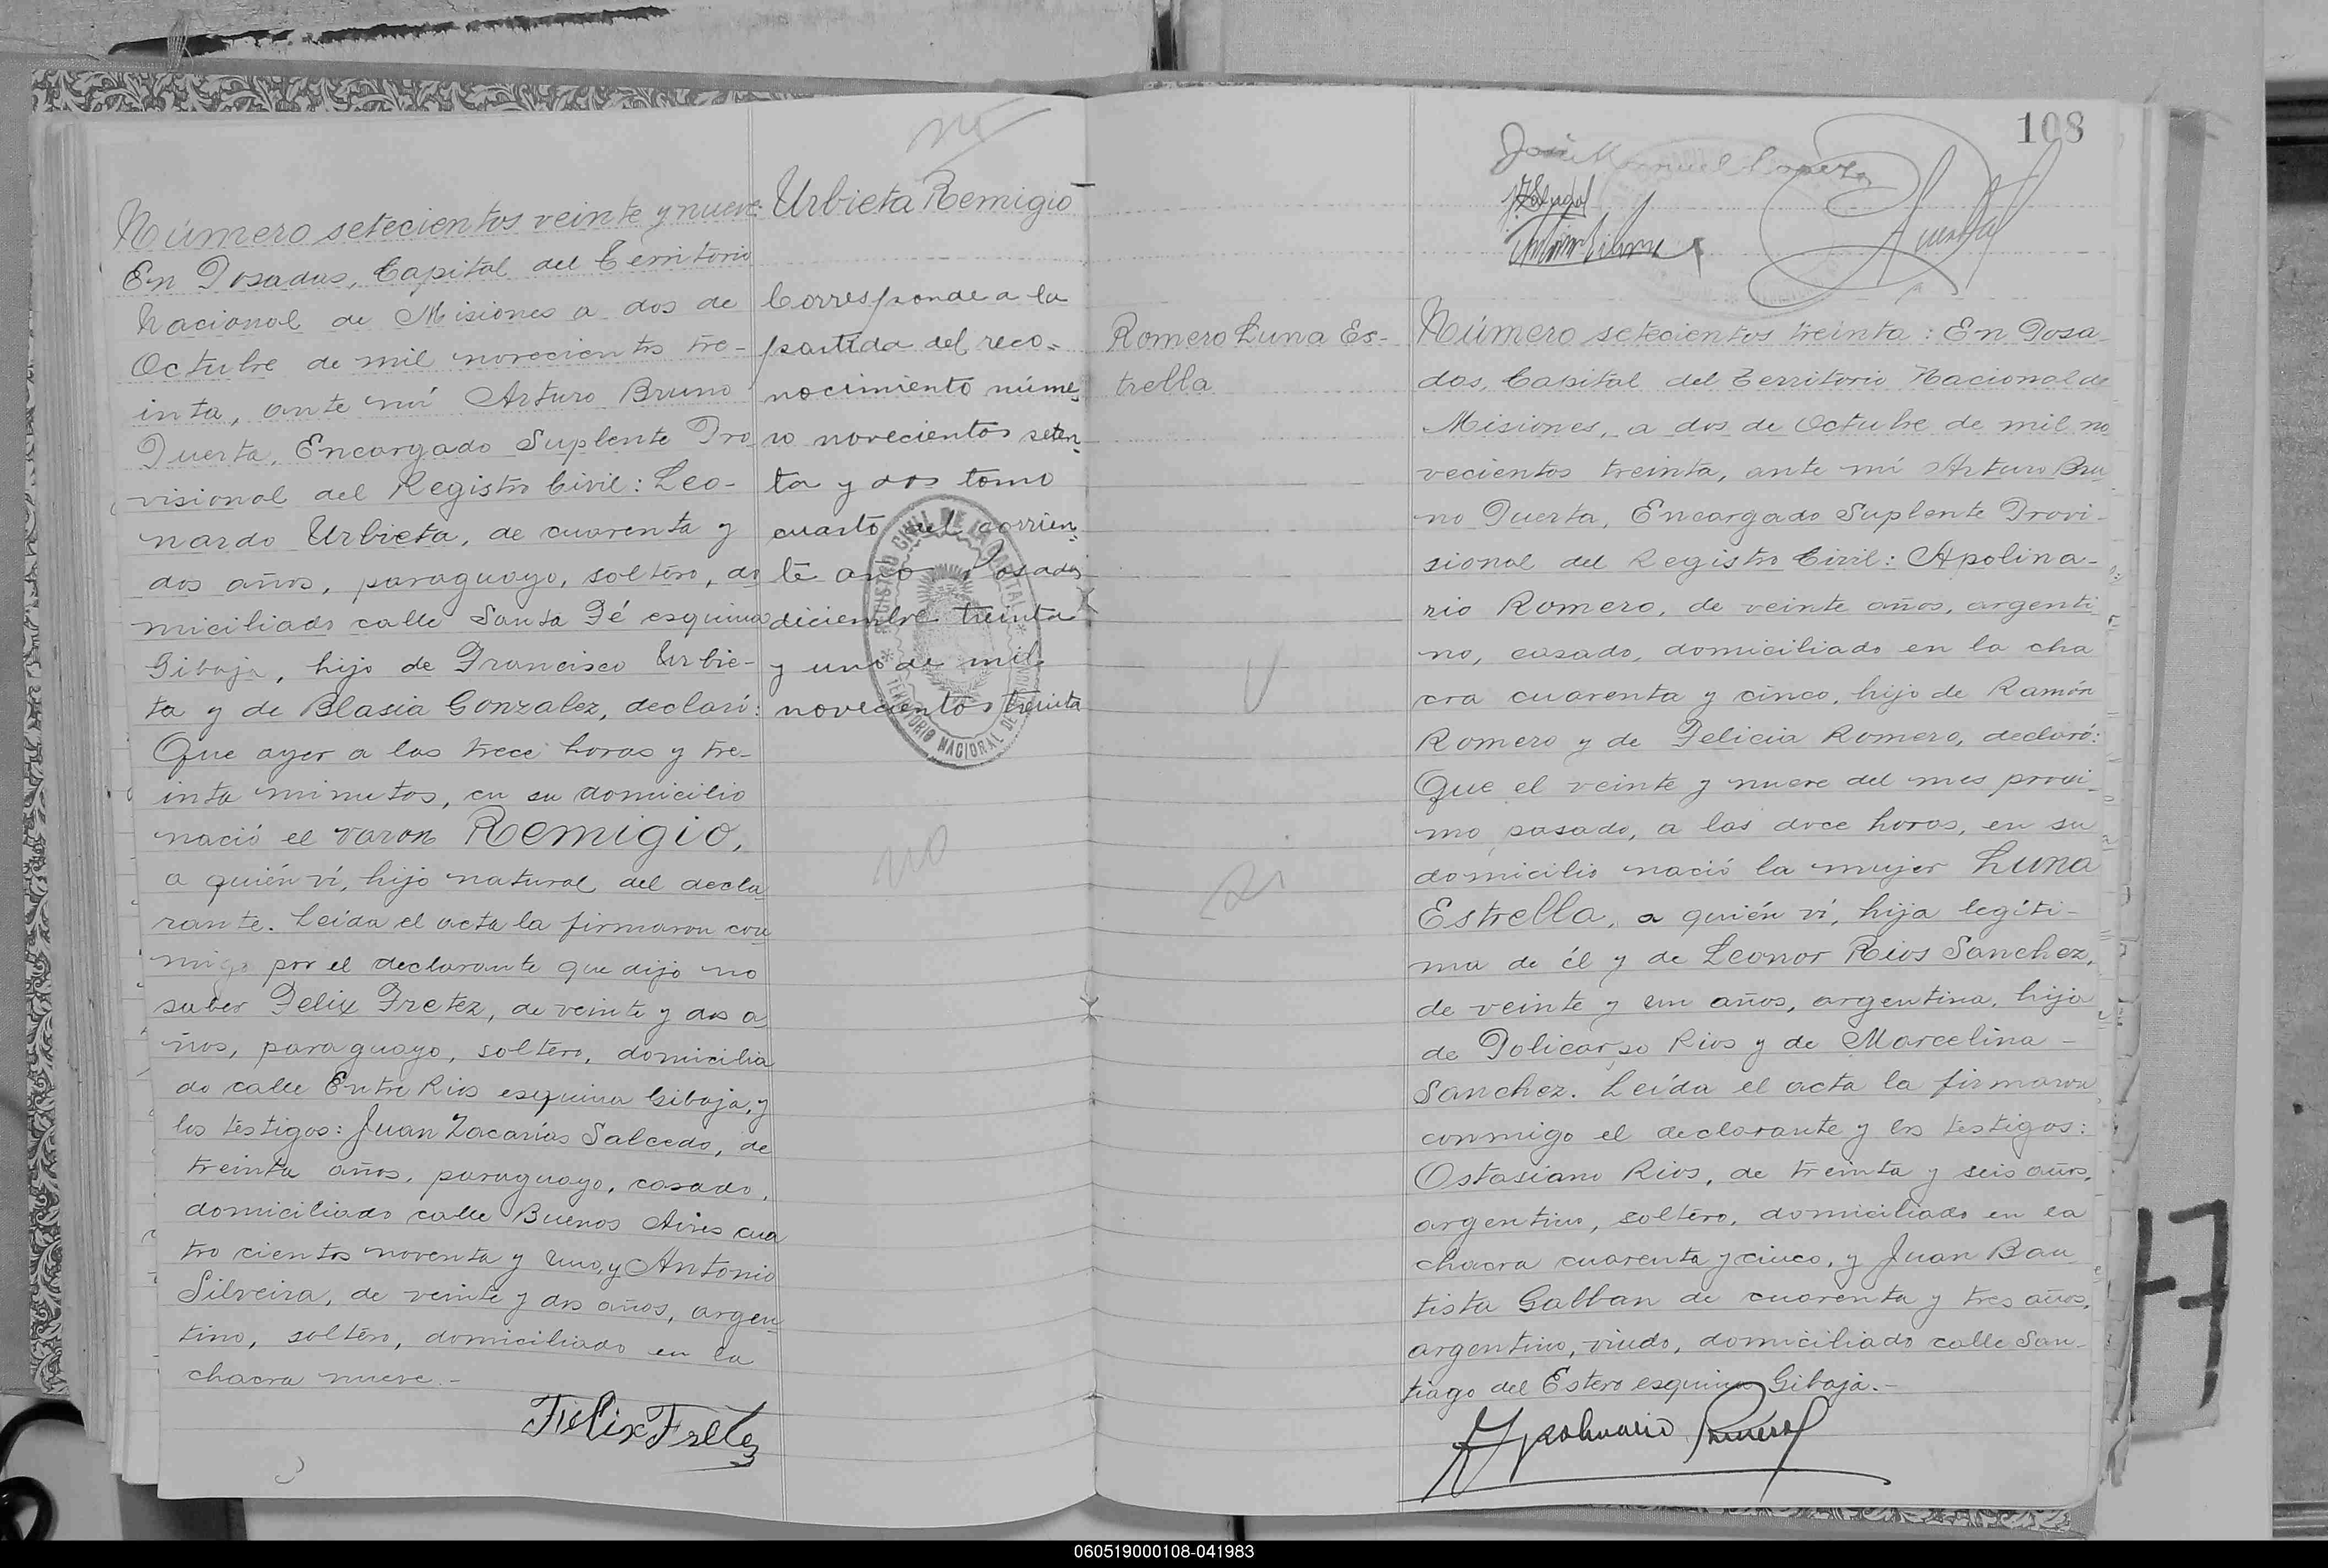 no
Número setecientos veinte y nueve:
En Posadas, Capital del Territorio
Nacional de Misiones a dos de
Octubre de mil novecientos tre-
inta, ante mí Arturo Bruno
Puerta, Encargado Suplente Pro
visional del Registro Civil: Leo-
nardo Urbieta, de cuarenta y
dos años, paraguayo, soltero, do
miciliado calle Santa Fé esquina
Gibaja, hijo de Francisco Urbie-
ta y de Blasia Gonzalez, declaró:
Que ayer a las trece horas y tre-
inta minutos, en su domicilio
nació el varon Remigio,
a quién ví, hijo natural del decla
rante. Leida el acta la firmaron con
migo por el declarante que dijo no
saber Felix Fretez, de veinte y dos a
ños, paraguayo, soltero, domicilia
do calle Entre Rios esquina Gibaja, y
los testigos: Juan Zacarías Salcedo, de
treinta años, paraguayo, casado,
domiciliado calle Buenos Aires cua
tro cientos noventa y uno, y Antonio
Silveira, de veinte y dos años, argen
tino, soltero, domiciliado en la
chacra nueve.-
Felix Fretez
Urbieta Remigio
Corresponde a la
partida del reco-
nocimiento núme
ro novecientos seten
ta y dos tomo
cuarto del corrien
te año Posadas
diciembre treinta
y uno de mil
novecientos treinta
REGISTRO CIVIL DE LA CAPITAL
TERRITORIO NACIONAL DE
no
108
José Manuel Lopez
Romero Luna Es-
trella
si
Número setecientos treinta: En Posa-
das, Capital del Territorio Nacional de
Misiones, a dos de Octubre de mil no
vecientos treinta, ante mí Arturo Bru
no Puerta, Encargado Suplente Provi-
sional del Registro Civil: Apolina-
rio Romero, de veinte años, argenti
no, casado, domiciliado en la cha
cra cuarenta y cinco, hijo de Ramón
Romero y de Felicia Romero, declaró:
Que el veinte y nueve del mes proxi-
mo pasado, a las doce horas, en su
domicilio nació la mujer Luna
Estrella, a quién ví, hija legíti-
ma de él y de Leonor Rios Sanchez,
de veinte y un años, argentina, hija
de Policarpo Rios y de Marcelina -
Sanchez. Leída el acta la firmaron
conmigo el declarante y los testigos:
Ostasiano Rios, de treinta y seis años,
argentino, soltero, domiciliado en la
chacra cuarenta y cinco, y Juan Bau
tista Galban de cuarenta y tres años,
argentino, viudo, domiciliado calle San-
tiago del Estero esquina Gibaja.-
Apolinario Romero
060519000108-041983